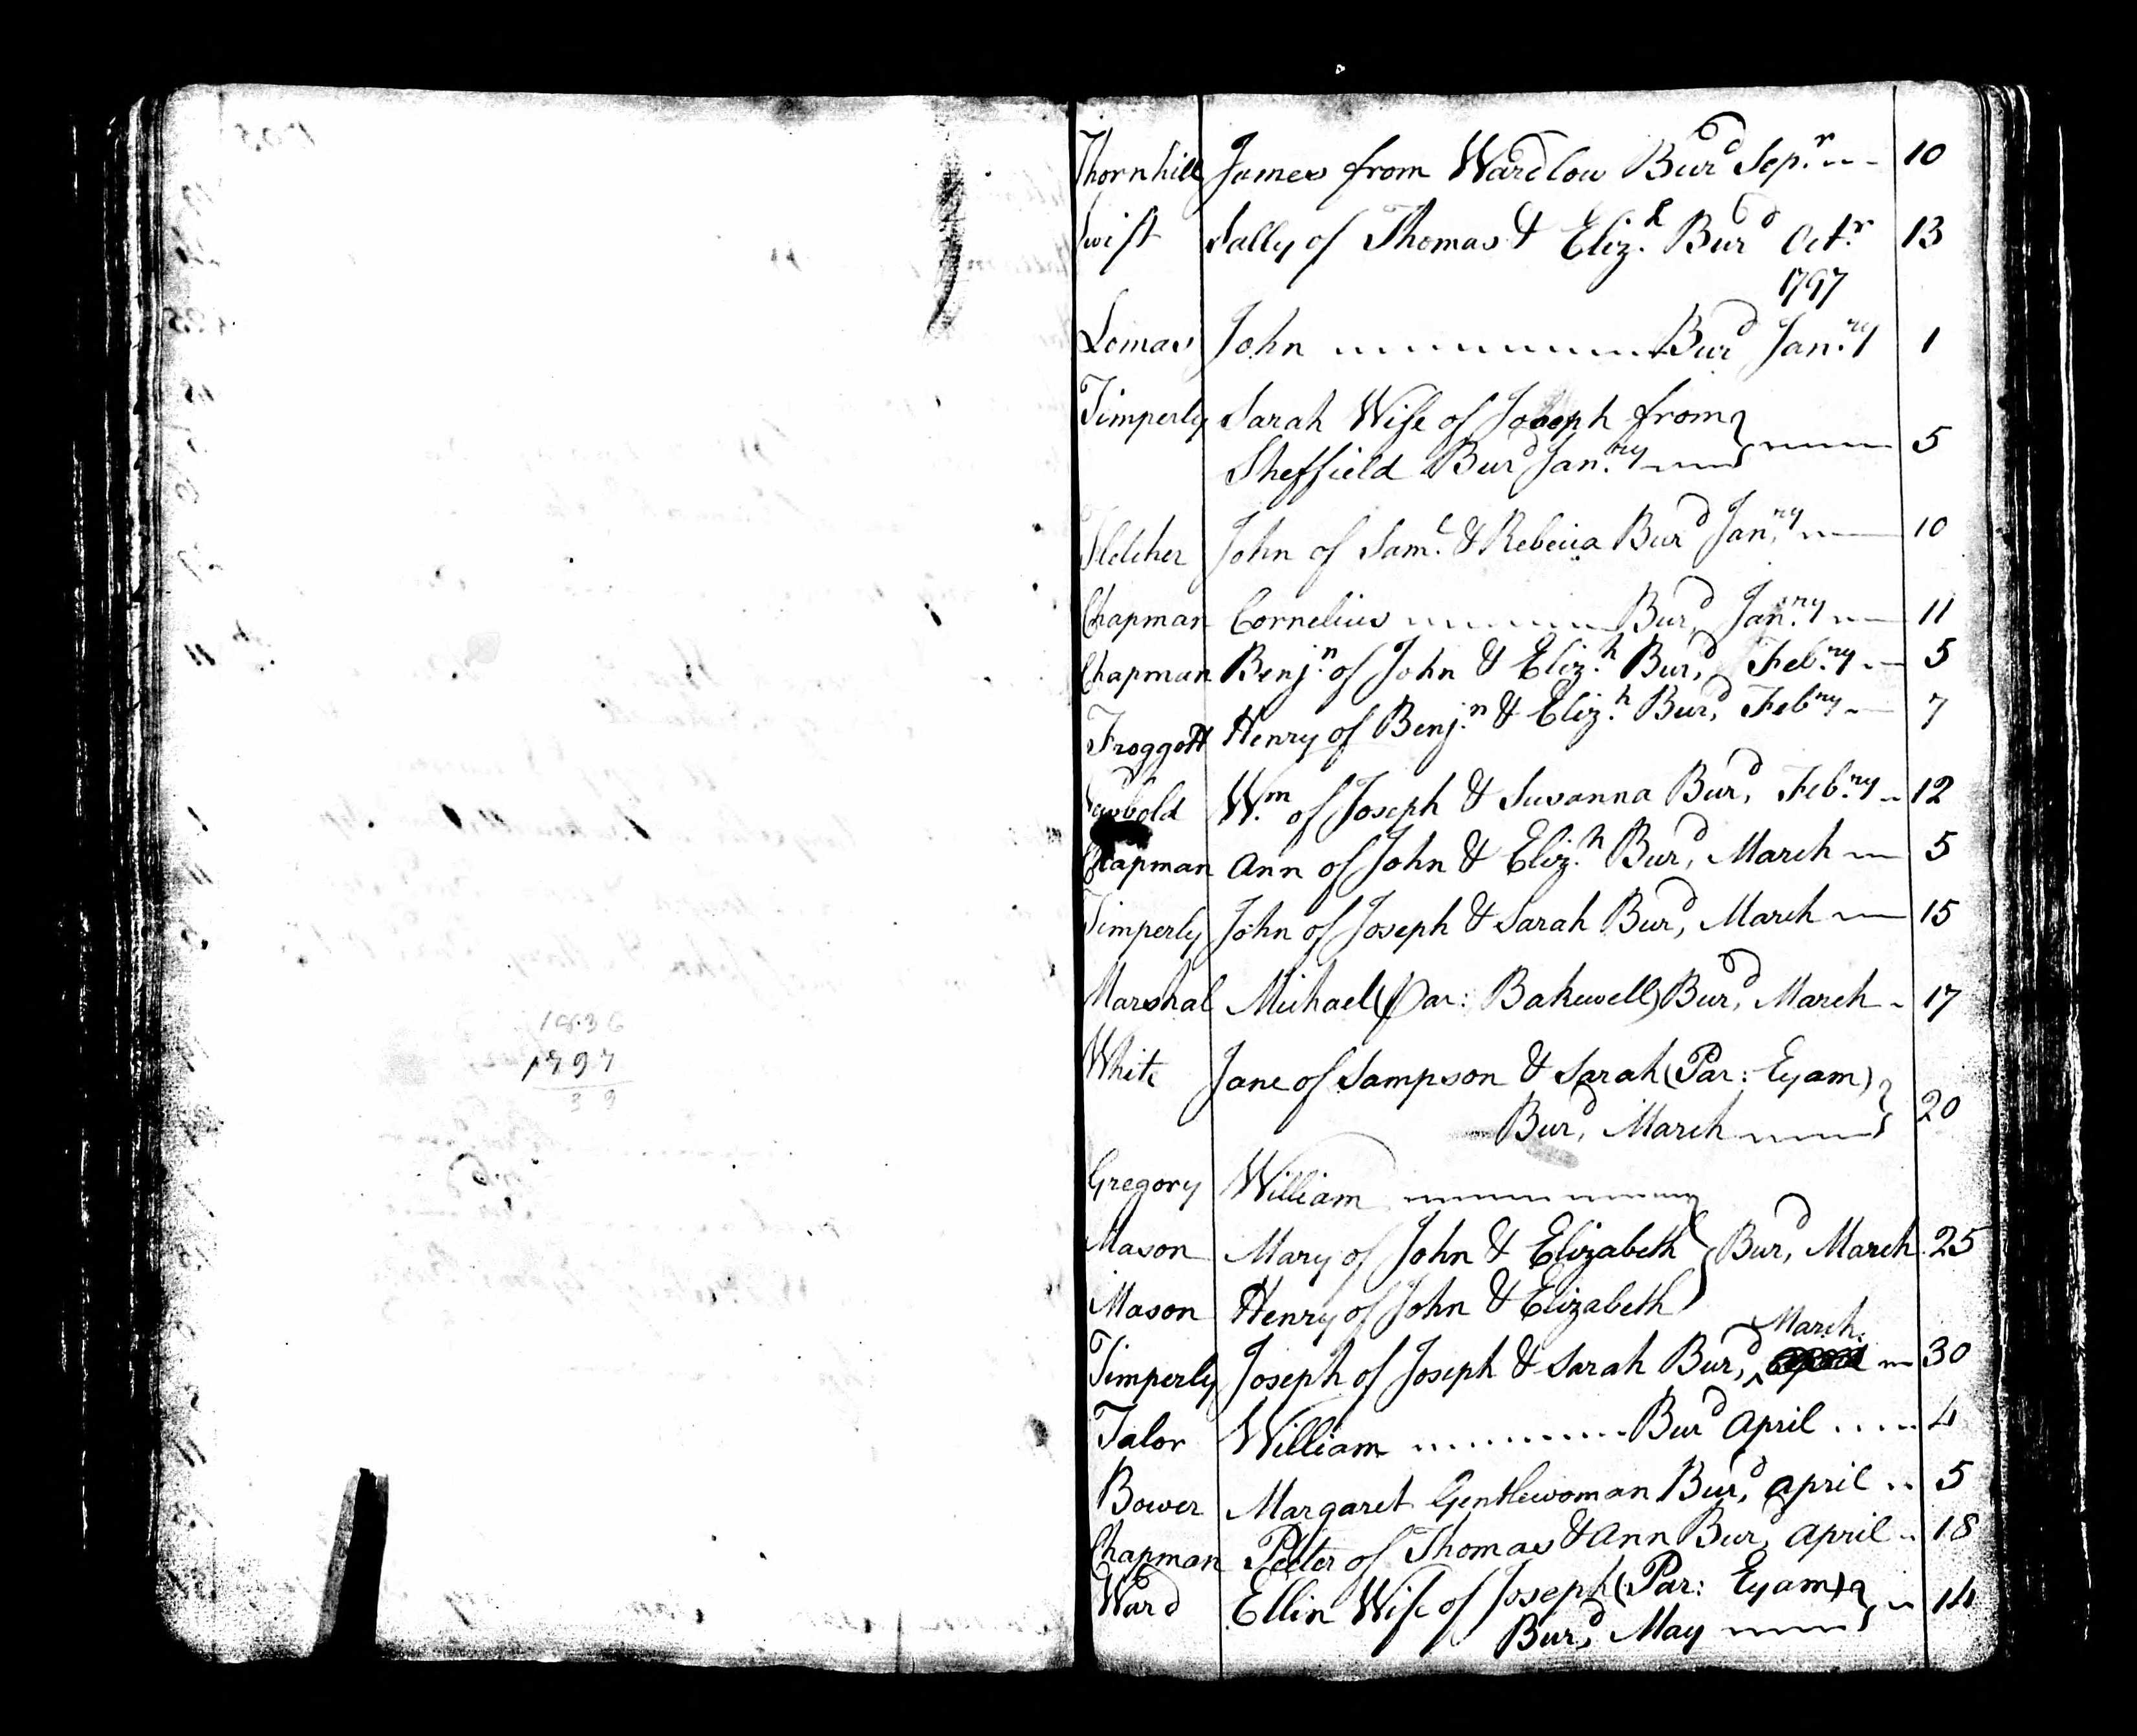 1836
1797
39
Thornhill James from Wardlow Burd Sepr 10
Swift Sally of Thomas & Elizh Burd Octr 13
1797
Lomas John Burd Janry 1
Timperly Sarah Wife of Joseph from
Sheffield Burd Janry 5
Fletcher John of Saml & Rebecca Burd Janry 10
Chapman Cornelius Burd Janry 11
Chapman Benjn of John & Elizh Burd Febry 5
Froggott Henry of Benjn & Elizh Burd Febry 7
Wm of Joseph & Susanna Burd Febry 12
Chapman Ann of John & Elizh Burd March 5
Timperly John of Joseph & Sarah Burd March 15
Marshal Michael (Par: Bakewell) Burd March 17
White Jane of Sampson & Sarah (Par: Eyam)
Burd March 20
Gregory William
Mason Mary of John & Elizabeth Burd March 25
Mason Henry of John & Elizabeth
March
Timperly Joseph of Joseph & Sarah Burd 30
Talor William Burd April 4
Bower Margaret Gentlewoman Burd April 5
Chapman Peter of Thomas & Ann Burd April 18
Ward Ellin Wife of Joseph (Par: Eyam)
Burd May 14